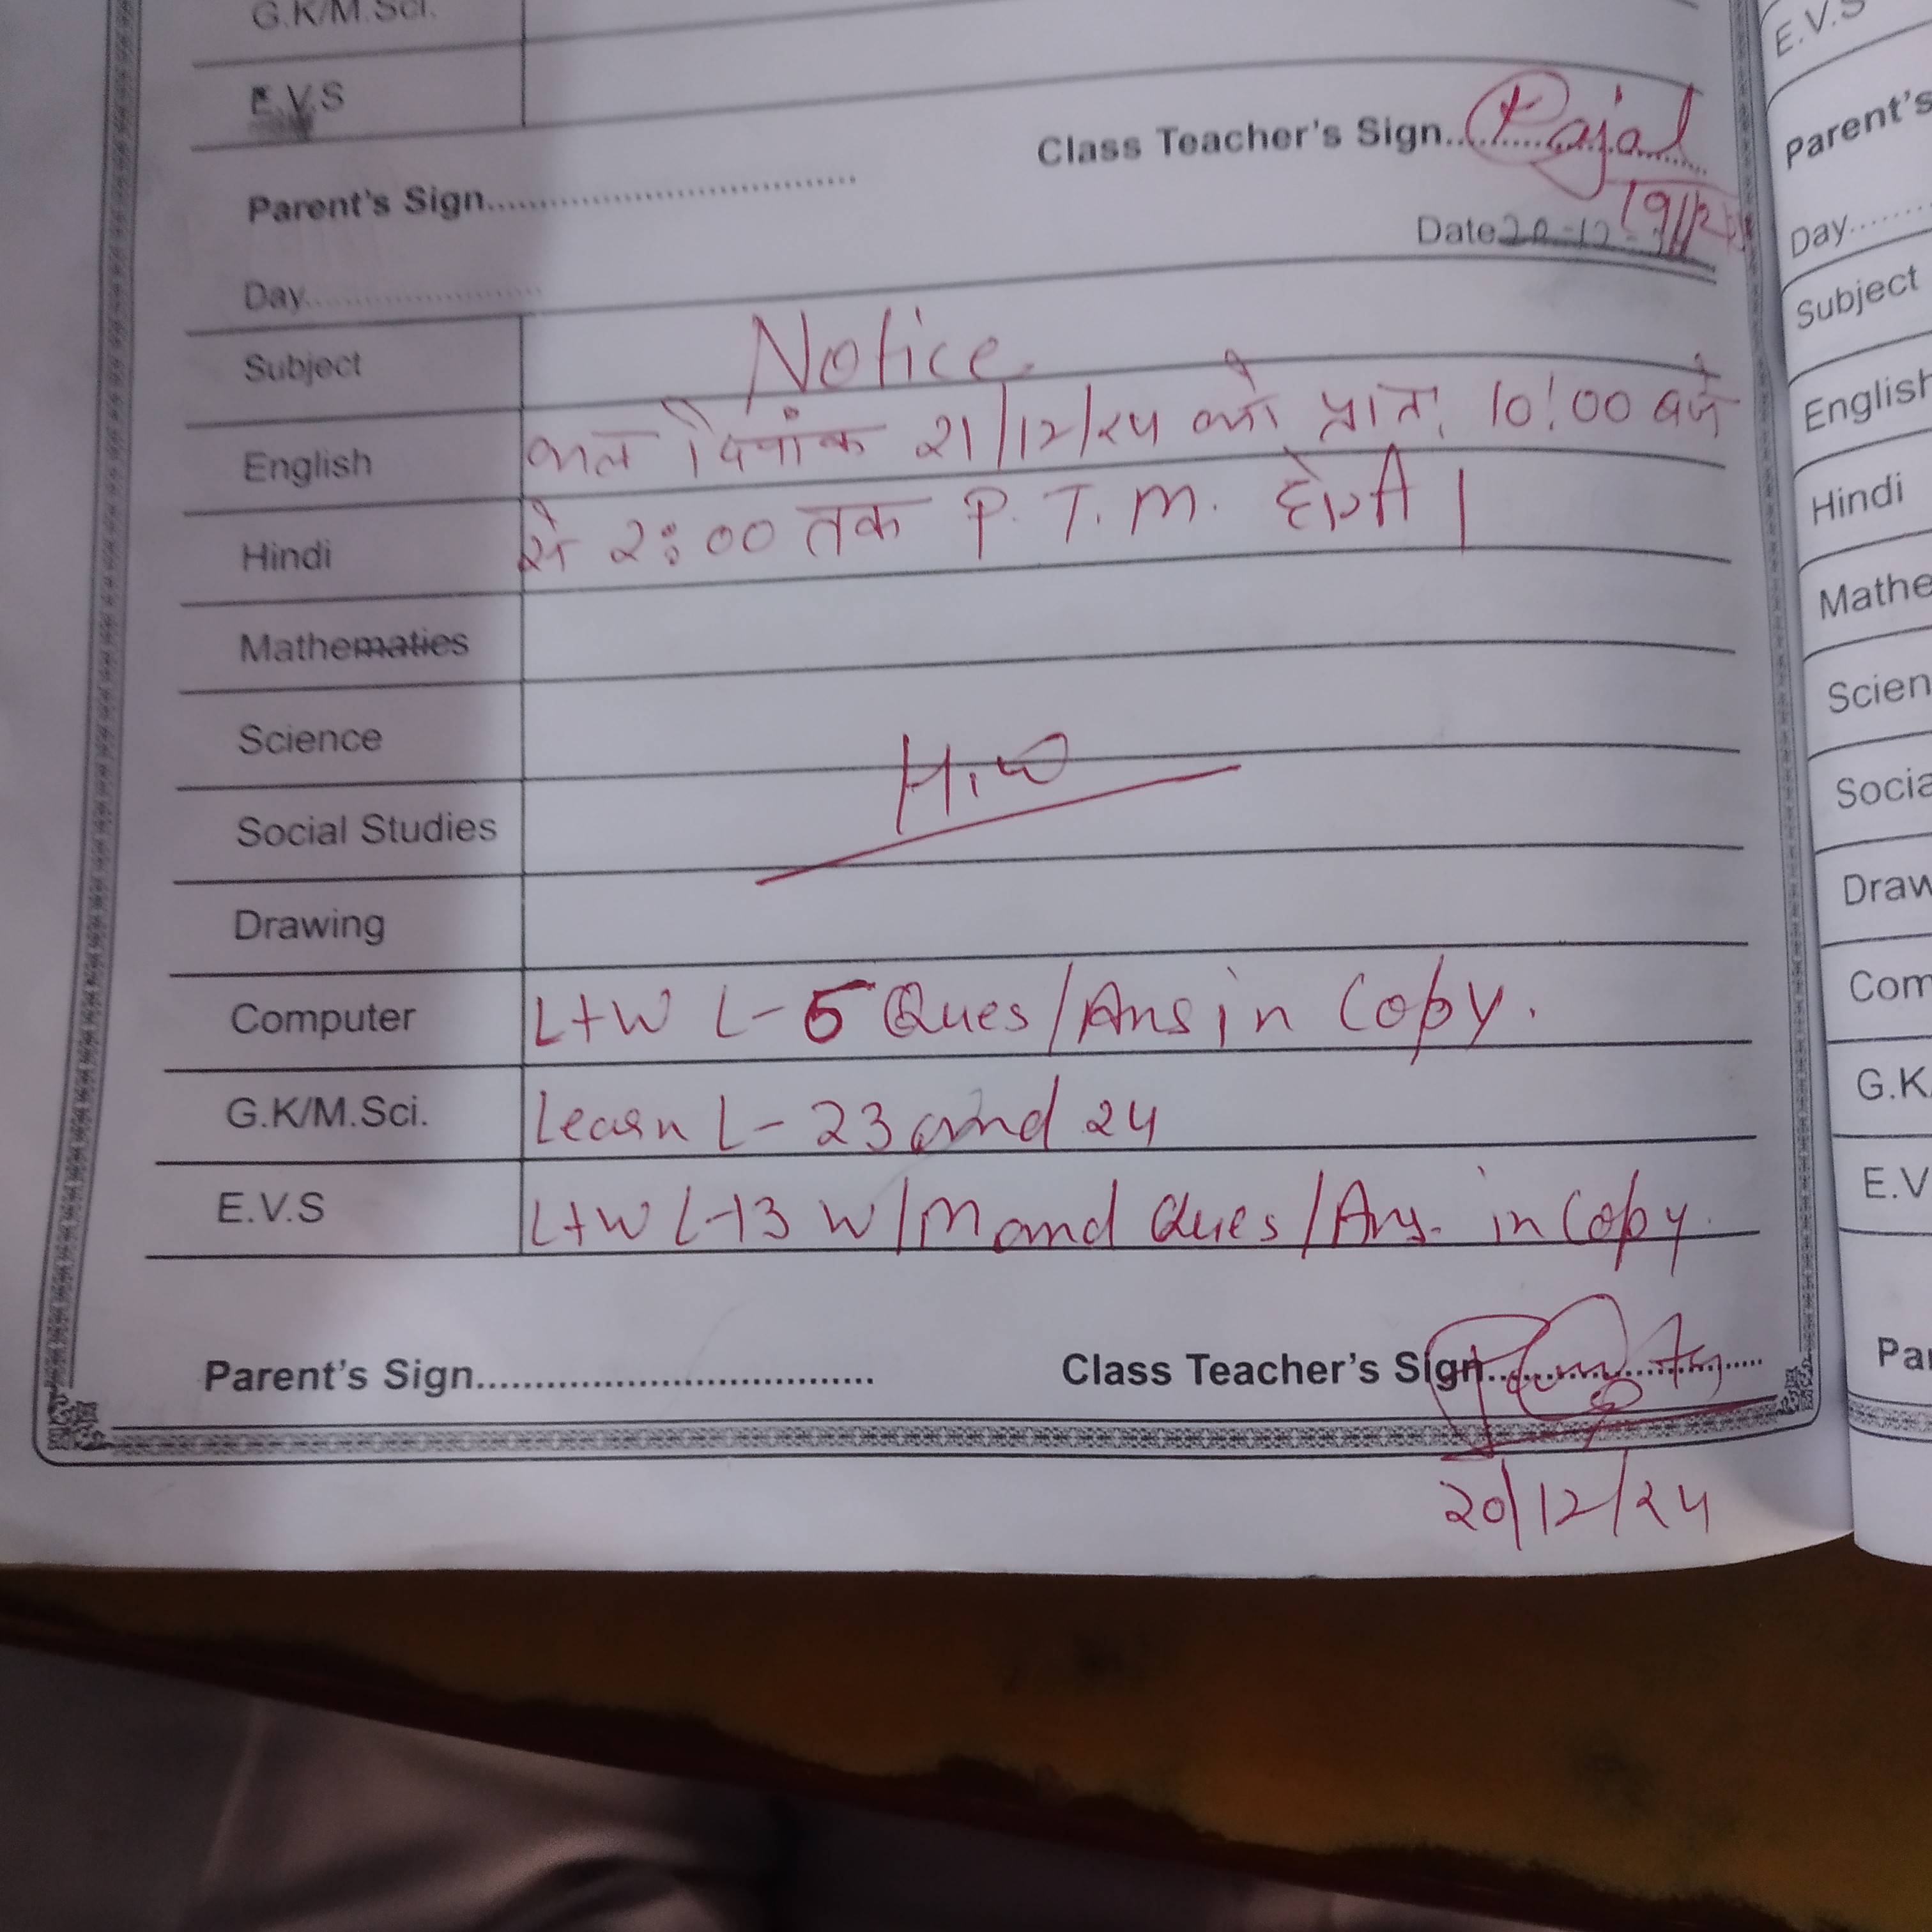 G.K/M.Sci.
E.V.S
Class Teacher's Sign....Rajal
Parent's Sign....................
Date 20-12-
19/12/24
Day....................
Subject Notice
English कल दिनांक 21/12/24 को प्रात: 10:00 बजे
Hindi से 2:00 तक P.T.M. होगी।
Mathematics
Science
H.W
Social Studies
Drawing
Computer L+W L-5 Ques/Ans in Copy.
G.K/M.Sci. Learn L-23 and 24
E.V.S L+W L-13 W/M and Ques/Ans. in Copy.
Parent's Sign.................... Class Teacher's Sign....................
20/12/24
E.V.S
Parent's
Day........
Subject
English
Hindi
Mathe
Scien
Socia
Draw
Com
G.K
E.V
Par